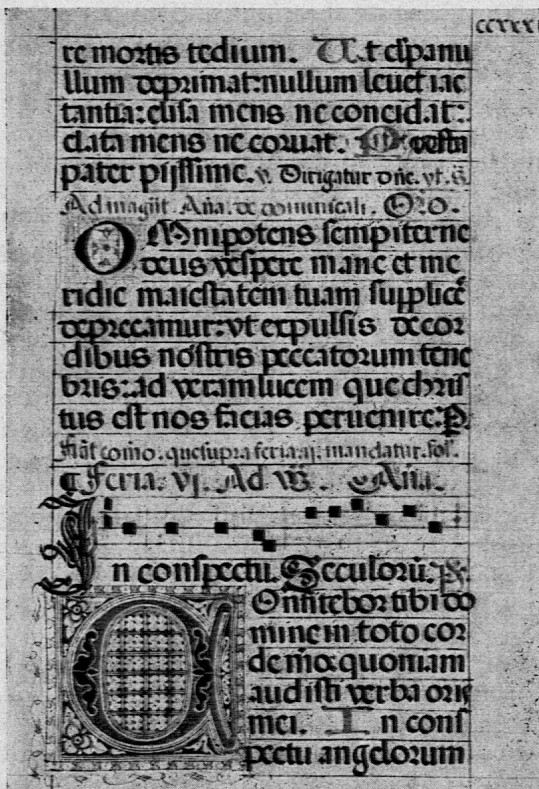 ccxxx
re mortis tedium. Ut est panu
llum deprimat: nullum leuet iac
tantia: elisa mens ne concidat:
elata mens ne coruat. Presta
pater pijssime. v. Dirigatur dñe. vt. s̄.
Ad magñt. Aña. de comunicali. Oro.
OMnipotens sempiterne
deus vespere mane et me
ridie maiestatem tuam supplicē
deprecamur: vt expulsis de cor
dibus nostris peccatorum tene
bris: ad veram lucem que chris
tus est nos facias peruenire: P.
fiāt como. que supra feria. ij. mandatur. sol.
¶ Feria. vj. Ad Vs̄. Aña.
In conspectu. Seculorū. Ps̄.
COnfitebor tibi do
mine in toto cor
de meo quoniam
audisti verba oris
mei. In cons
pectu angelorum